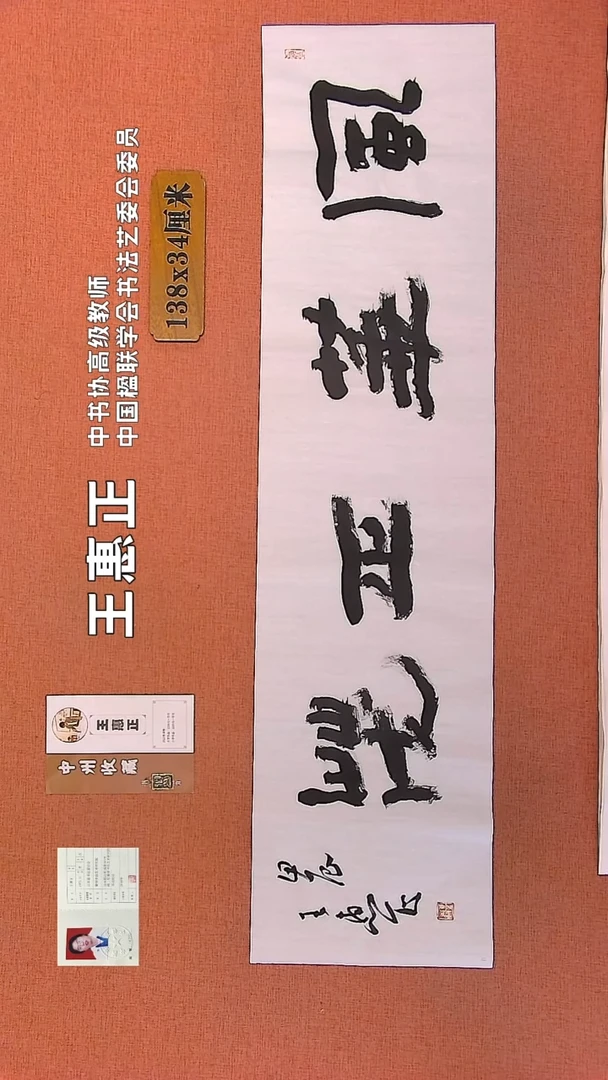 王惠正
中书协高级教师
中国楹联学会书法艺委会委员
138x34厘米
風華正茂
甲辰
王惠正
中州收藏
王惠正